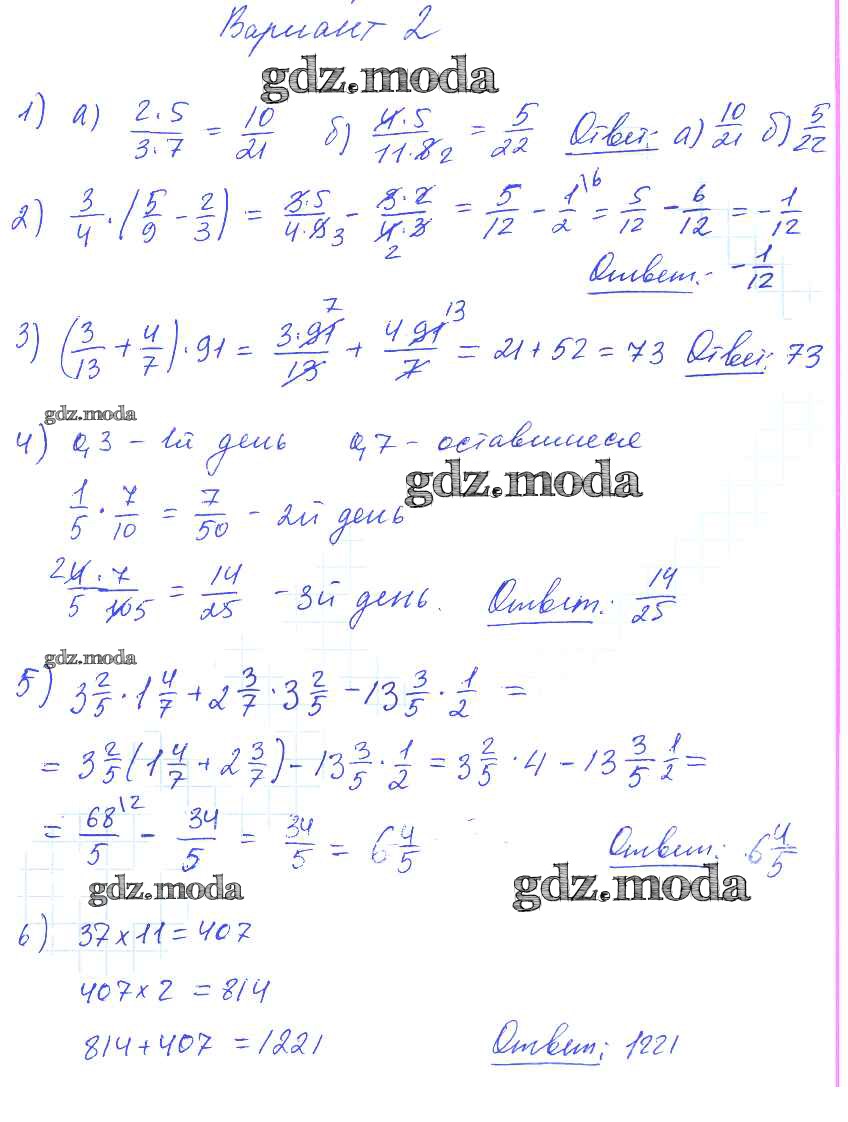 Вариант 2
gdz.moda
1) а) 2·5/3·7 = 10/21 б) 4·5/11·8 2 = 5/22 Ответ: а) 10/21 б) 5/22
2) 3/4 · (5/9 - 2/3) = 3·5/4·9 3 - 3·2/4·3 2 = 5/12 - 1/2 \6 = 5/12 - 6/12 = -1/12
Ответ: -1/12
3) (3/13 + 4/7) · 91 = 3·91 7/13 + 4 91 13/7 = 21 + 52 = 73 Ответ: 73
gdz.moda
4) 0,3 - 1й день 0,7 - оставшиеся
gdz.moda
1/5 · 7/10 = 7/50 - 2й день
2 4·7/5 10 5 = 14/25 - 3й день. Ответ: 14/25
gdz.moda
5) 3 2/5 · 1 4/7 + 2 3/7 · 3 2/5 - 13 3/5 · 1/2 =
= 3 2/5 (1 4/7 + 2 3/7) - 13 3/5 · 1/2 = 3 2/5 · 4 - 13 3/5 1/2 =
= 68/5 \2 - 34/5 = 34/5 = 6 4/5 Ответ: 6 4/5
gdz.moda gdz.moda
6) 37 x 11 = 407
407 x 2 = 814
814 + 407 = 1221 Ответ: 1221